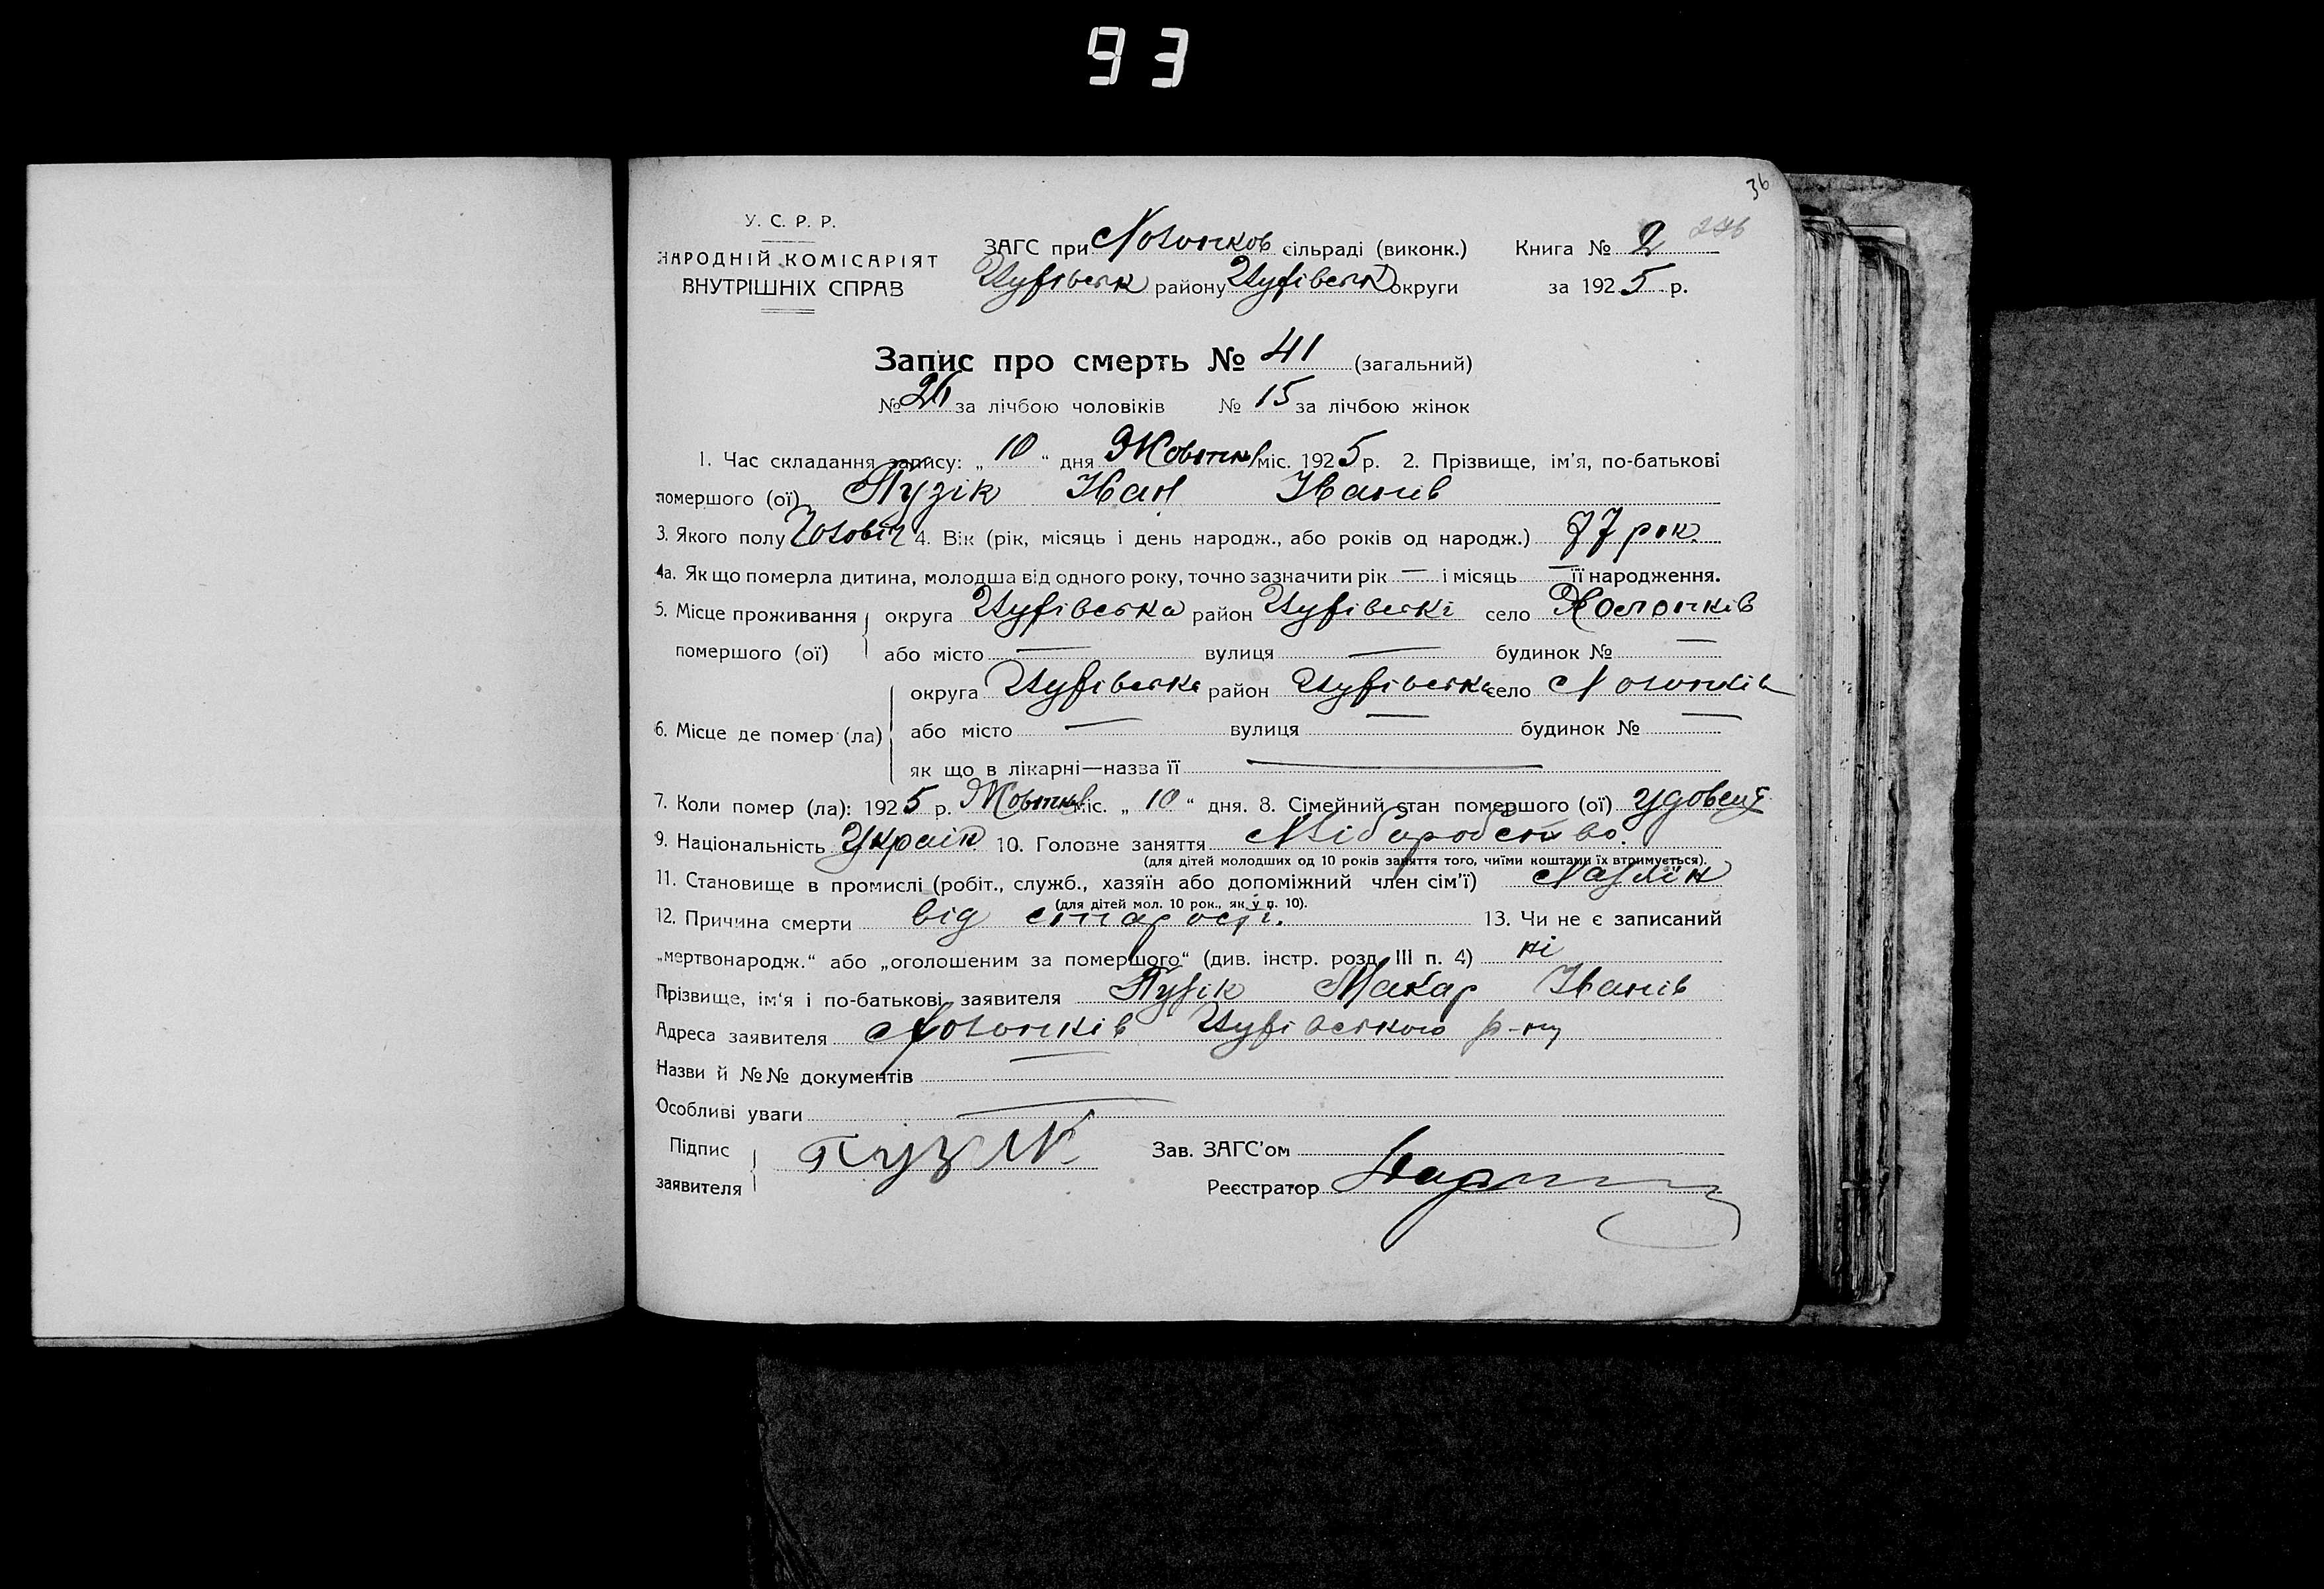 93
36
У. С. Р. Р.
НАРОДНІЙ КОМІСАРІЯТ
ВНУТРІШНІХ СПРАВ
ЗАГС при сільраді (виконк.) Книга № 2
району округи за 1925 р.
Запис про смерть № 41 (загальний)
№ 26 за лічбою чоловіків № 15 за лічбою жінок
1. Час складання запису: „ 10 “ дня Жовтня міс. 1925 р. 2. Прізвище, ім'я, по-батькові
помершого (ої) Пузік Іван Іванів
3. Якого полу Чоловіч 4. Вік (рік, місяць і день народж., або років од народж.) 77 рок.
4а. Як що померла дитина, молодша від одного року, точно зазначити рік — і місяць — її народження.
5. Місце проживання округа район село
помершого (ої) або місто — вулиця — будинок № —
округа район село
6. Місце де помер (ла) або місто — вулиця — будинок № —
як що в лікарні—назва її —
7. Коли помер (ла): 1925 р. Жовтня міс. „ 10 “ дня. 8. Сімейний стан помершого (ої) удовець
9. Національність Україн 10. Головне заняття Хліборобство.
(для дітей молодших од 10 років заняття того, чиїми коштами їх втримується).
11. Становище в промислі (робіт., служб., хазяїн або допоміжний член сім'ї) Хазяїн
(для дітей мол. 10 рок., як у п. 10).
12. Причина смерти від старости. 13. Чи не є записаний
„мертвонародж.“ або „оголошеним за помершого“ (див. інстр. розд. III п. 4) ні
Прізвище, ім'я і по-батькові заявителя Пузік Макар Іванів
Адреса заявителя р-ну
Назви й №№ документів —
Особливі уваги —
Підпис
заявителя Пузік
Зав. ЗАГС'ом
Реєстратор